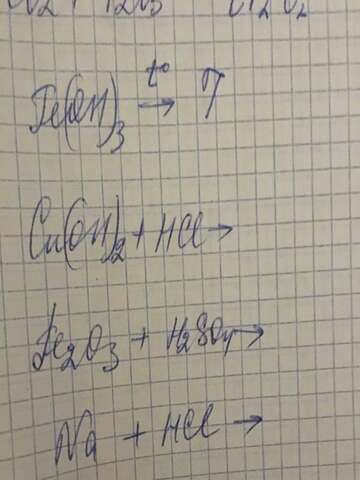 Fe(OH)₃ t° →
Cu(OH)₂ + HCl →
Fe₂O₃ + H₂SO₄ →
Na + HCl →